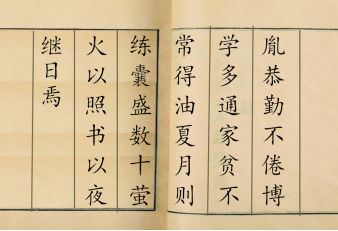 胤恭勤不倦博
学多通家贫不
常得油夏月则
练囊盛数十萤
火以照书以夜
继日焉